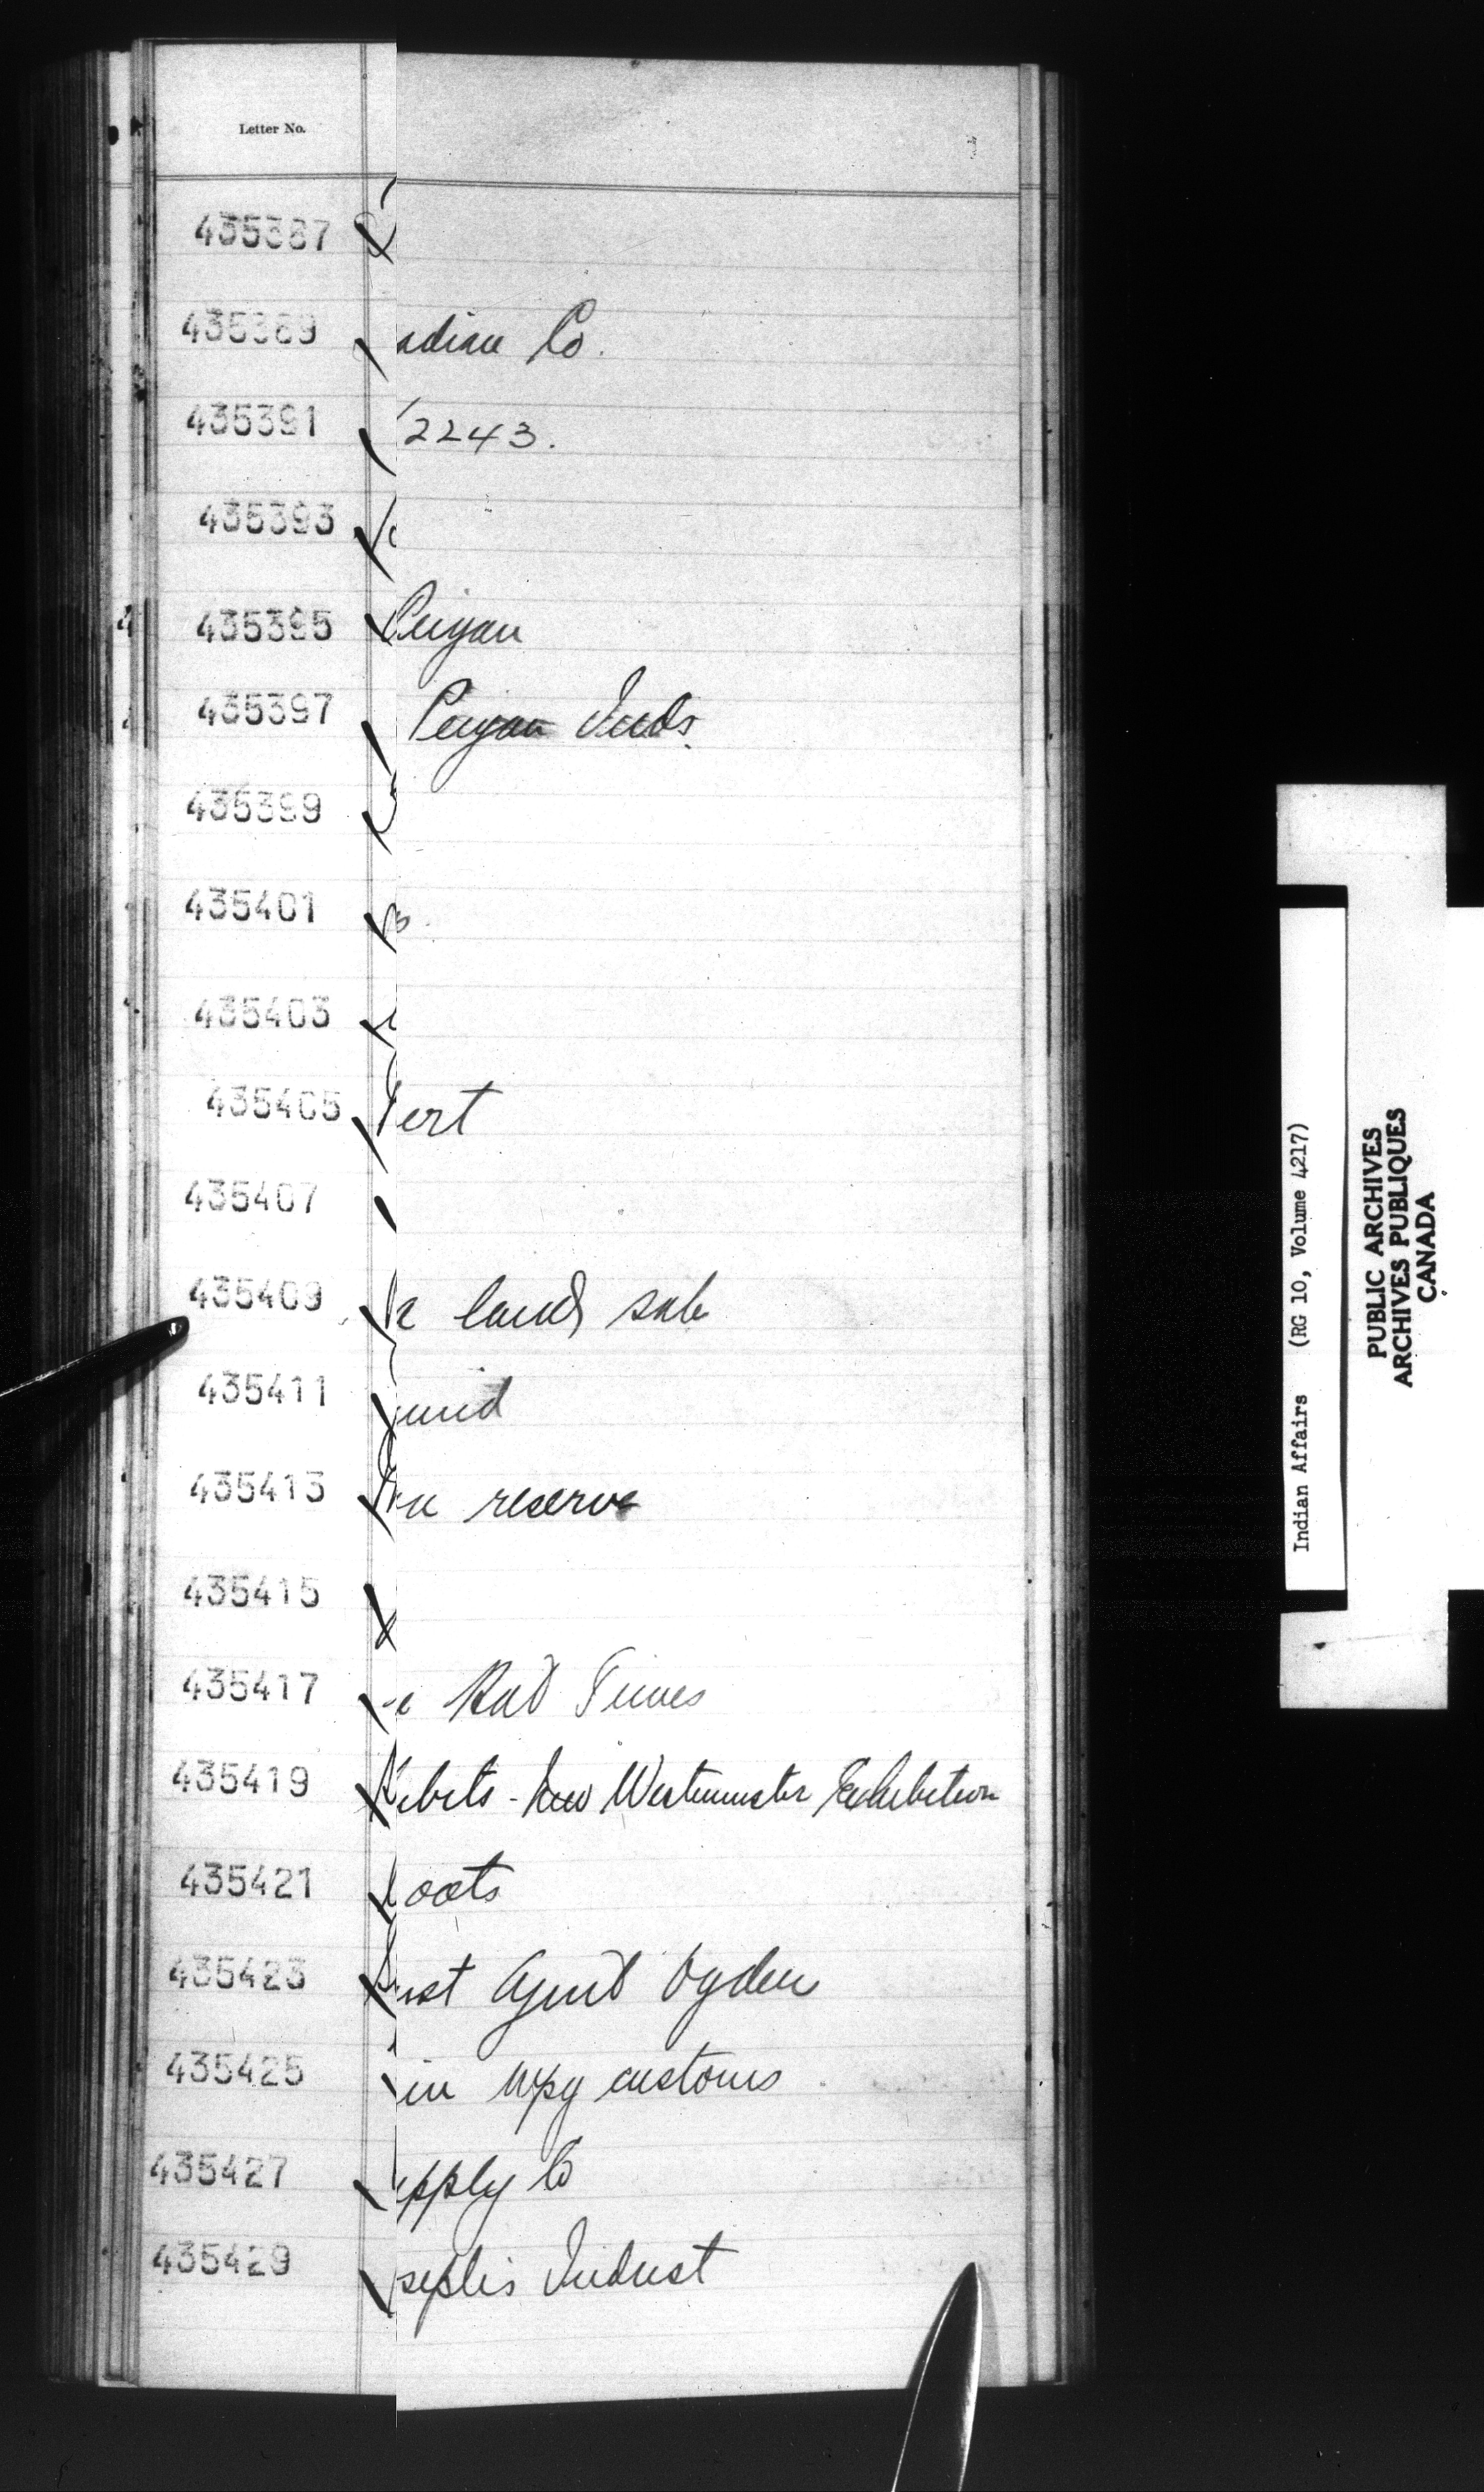 Letter No.
435387
435389 adian Co.
435391 2243.
435393
435395 Peigan
435397 Peigan Inds.
435399
435401
435403
435405 Tert
435407
435409 land sale
435411
435413 reserve
435415
435417 Hat Times
435419 ibits - New Westminster Exhibition
435421 oots
435423 ust Agent Ogden
435425 in Wpg customs
435427 upply Co
435429 sephs Indust
Indian Affairs (RG 10, Volume 4217)
PUBLIC ARCHIVES
ARCHIVES PUBLIQUES
CANADA